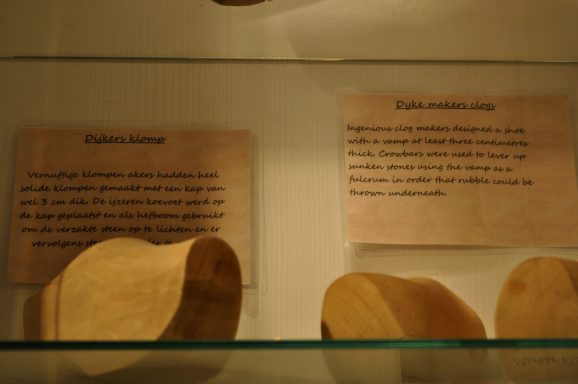 Dijkers klomp
Vernuftige klompen akers hadden heel
solide klompen gemaakt met een kap van
wel 3 cm dik. De ijzeren koevoet werd op
de kap geplaatst en als hefboom gebruikt
om de verzakte steen op te lichten en er
vervolgens
Dyke makers clogs
Ingenious clog makers designed a shoe
with a vamp at least three centimetres
thick. Crowbars were used to lever up
sunken stones using the vamp as a
fulcrum in order that rubble could be
thrown underneath.